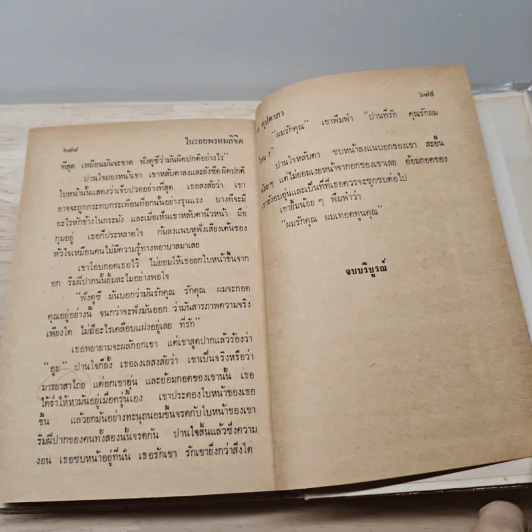 ๖๗๘
ในรอยพรหมลิขิต
ที่สุด เหมือนมันจะขาด ฟังดูซีว่ามันผิดปกติอย่างไร"
ปานใจมองหน้าเขา เขาหลับตาลงและยังซีดผิดปกติ
ใบหน้านั้นแสดงว่าเจ็บปวดอย่างที่สุด เธอสงสัยว่า เขา
อาจจะถูกกระทบกระเทือนที่อกนั้นอย่างรุนแรง บางทีจะมี
อะไรหักข้างในกระมัง และเมื่อเห็นเขาหลับตานิ่วหน้า มือ
กุมอยู่ เธอก็ประหลาดใจ ก้มลงแนบหูฟังเสียงเต้นของ
หัวใจเหมือนคนไม่มีความรู้ทางพยาบาลมาเลย
เขาโอบกอดเธอไว้ ไม่ยอมให้เธอยกใบหน้าขึ้นจาก
อก ริมฝีปากนั้นยิ้มละไมอย่างพอใจ
"ฟังดูซี มันบอกว่ามันรักคุณ รักคุณ ผมจะกอด
คุณอยู่อย่างนี้ จนกว่าจะฟังมันออก ว่ามันสารภาพความจริง
เพียงใด ไม่มีอะไรเคลือบแฝงอยู่เลย ที่รัก"
เธอพยายามจะผลักอกเขา แต่เขาสูดปากแล้วร้องว่า
"อูย" ปานใจก็ยั้ง เธอลงเลสงสัยว่า เขาเป็นจริงหรือว่า
มารยาสาไถย แต่อกเขาอุ่น และอ้อมกอดของเขานั้น เธอ
ได้ร่ำไห้หามันอยู่เมื่อครู่นี้เอง เขาประคองใบหน้าของเธอ
ขึ้น แล้วยกมันอย่างทะนุถนอมขึ้นจรดกับใบหน้าของเขา
ริมฝีปากของคนทั้งสองนั้นจรดกัน ปานใจสิ้นแล้วซึ่งความ
งอน เธอซบหน้าอยู่ที่นั่น เธอรักเขา รักเขายิ่งกว่าสิ่งใด
๖๗๙
"ผมรักคุณ" เขาพึมพำ "ปานที่รัก คุณรักผม
ปานใจหลับตา ซบหน้าลงแนบอกของเขา สะอื้น
แต่ไม่ยอมเงยหน้าจากอกของเขาเลย อ้อมกอดของ
อบอุ่นและเป็นที่ที่เธอควรจะซุกซบต่อไป
เขายิ้มน้อย ๆ พึมพำว่า
"ผมรักคุณ ผมเทอดทูนคุณ"
จบบริบูรณ์